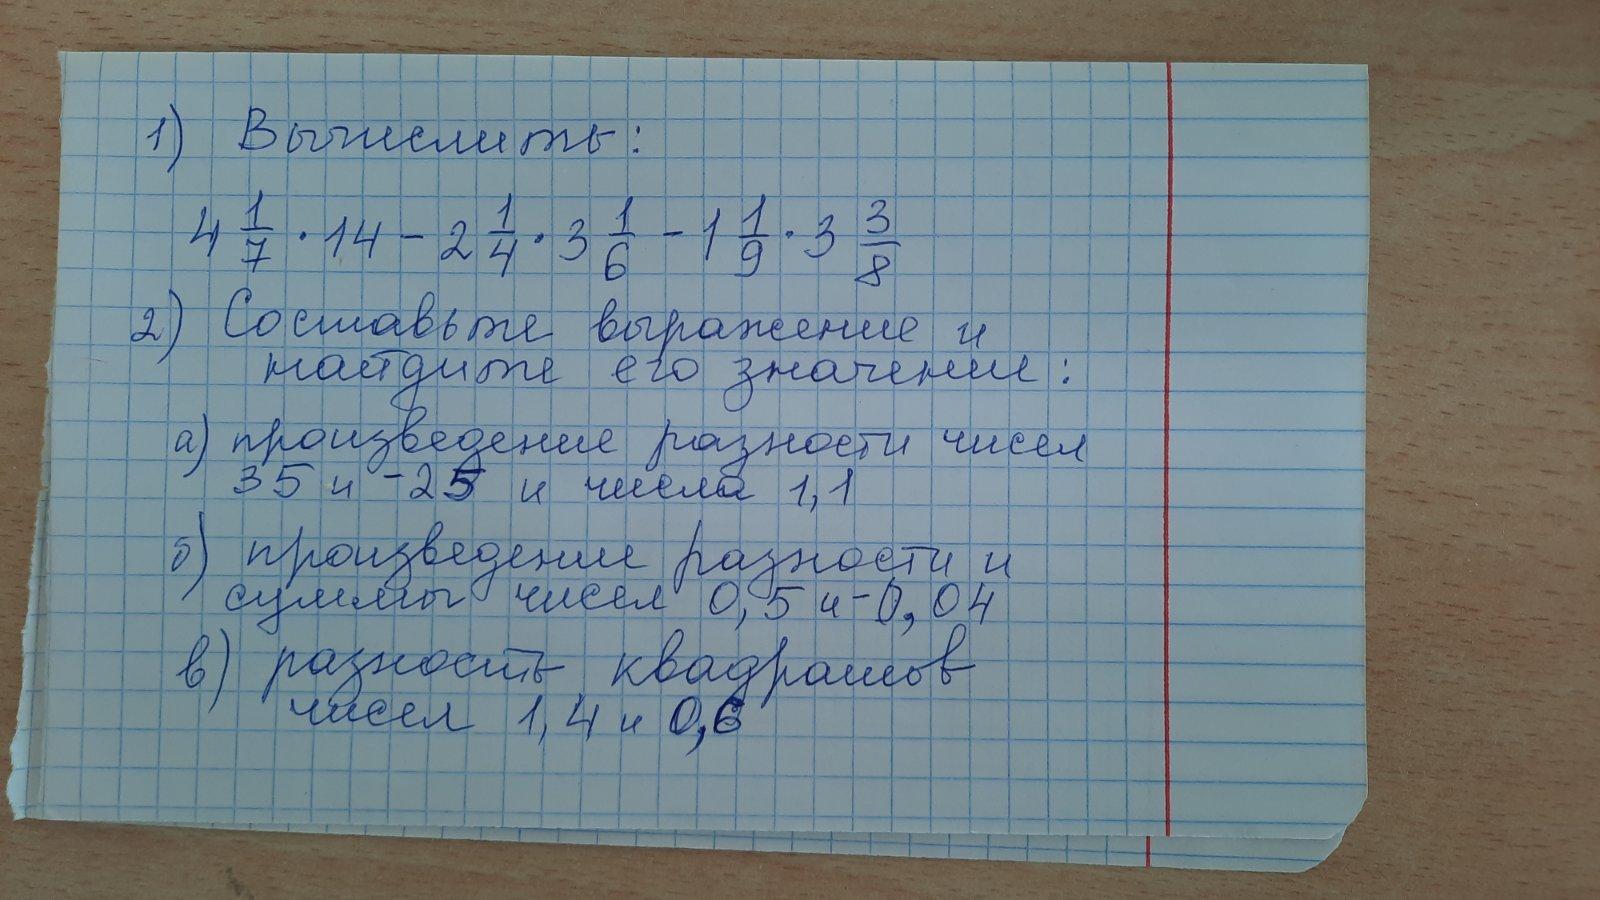 1) Вычислить:
4 1/7 · 14 - 2 1/4 · 3 1/6 - 1 1/9 · 3 3/8
2) Составьте выражение и
найдите его значение:
а) произведение разности чисел
35 и -25 и числа 1,1
б) произведение разности и
суммы чисел 0,5 и -0,04
в) разность квадратов
чисел 1,4 и 0,6